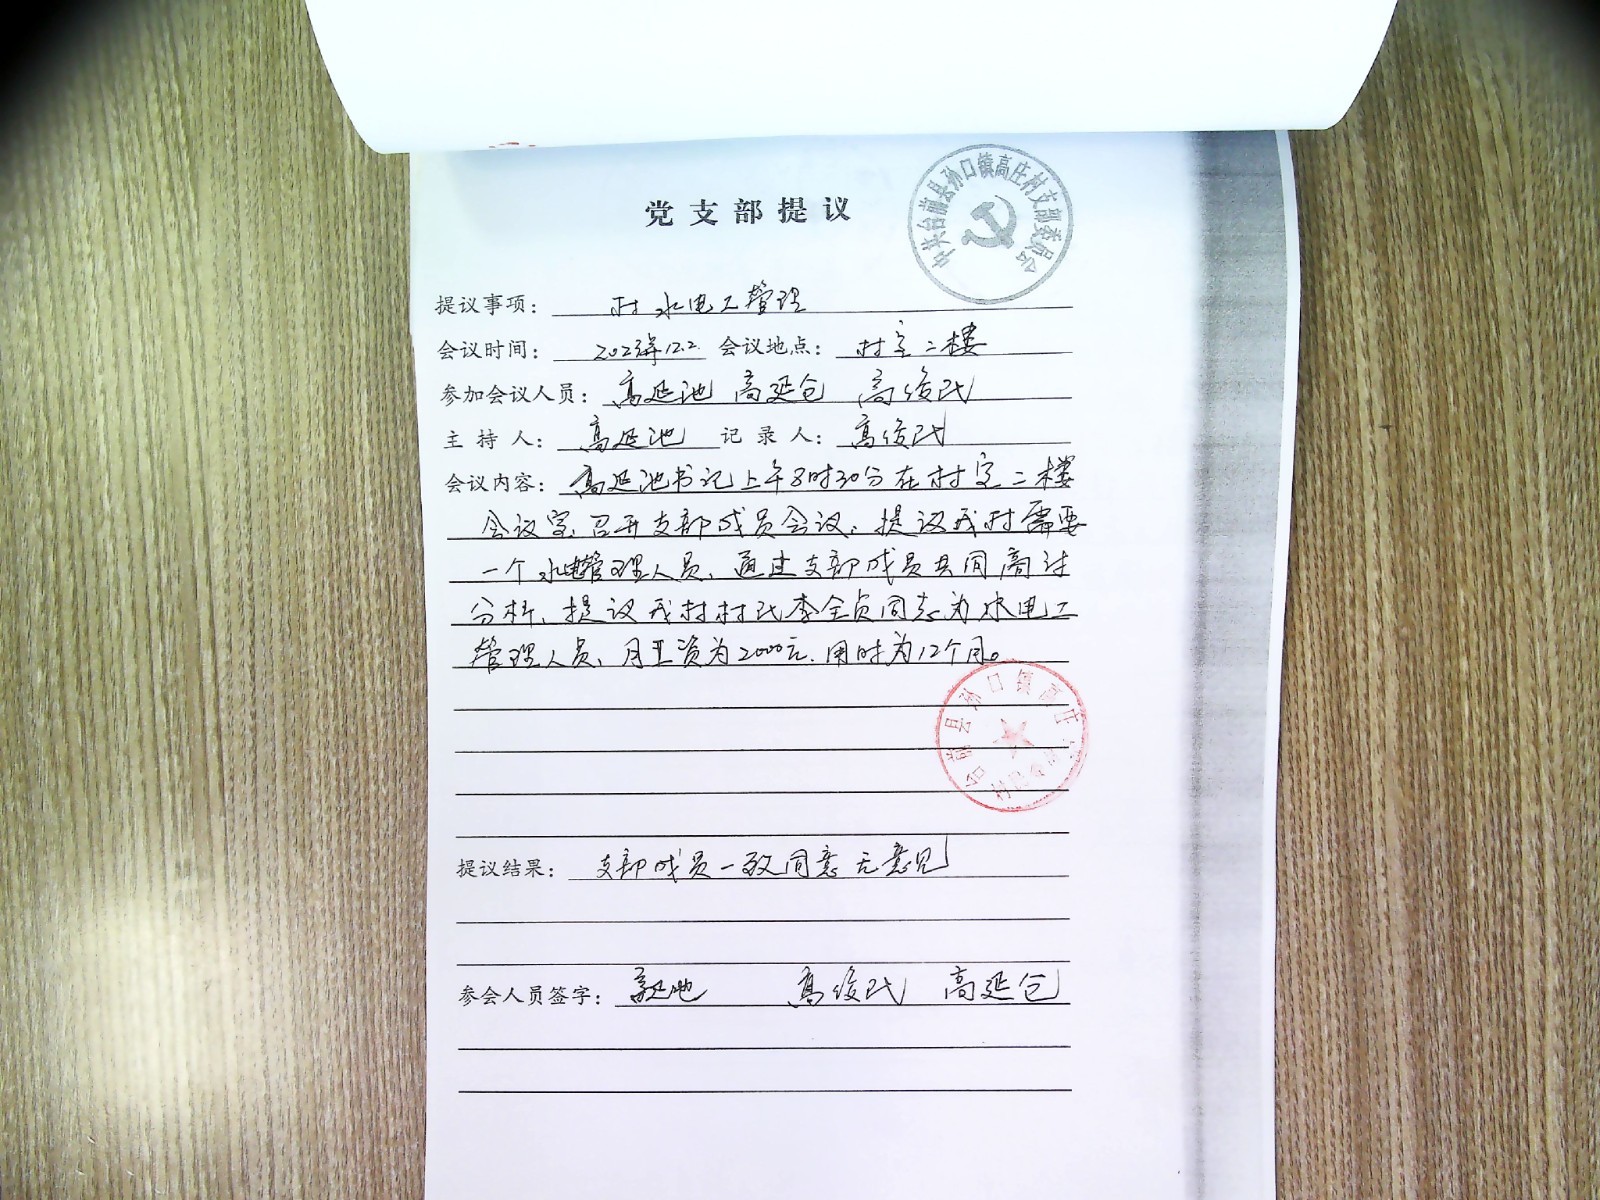 中共台前县孙口镇高庄村支部委员会
党支部提议
提议事项： 村水电工管理
会议时间： 2023年12.2 会议地点： 村室二楼
参加会议人员： 高延池 高延仓 高俊民
主持人： 高延池 记录人： 高俊民
会议内容： 高延池书记上午8时30分在村室二楼
会议室召开支部成员会议、提议我村需要
一个水电管理人员、通过支部成员共同商讨
分析、提议我村村民李全贞同志为水电工
管理人员、月工资为2000元.用时为12个月。
台前县孙口镇高庄
村民委员会
提议结果： 支部成员一致同意无意见
参会人员签字： 高延池 高俊民 高延仓